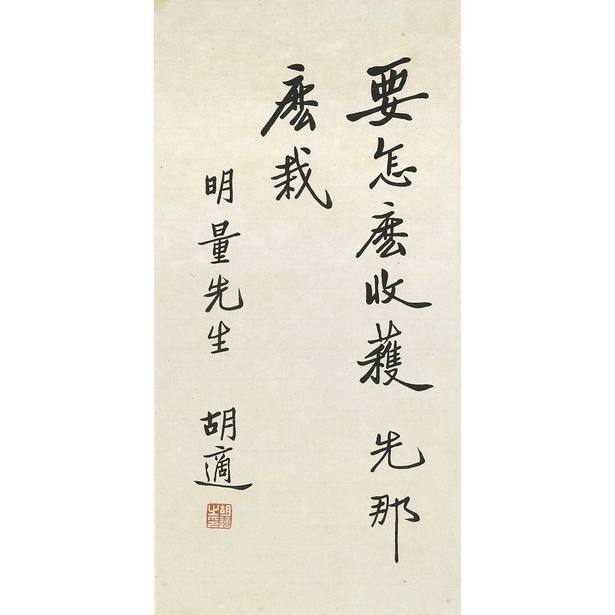 要怎麽收穫先那
麽栽
明量先生 胡適
胡適之印